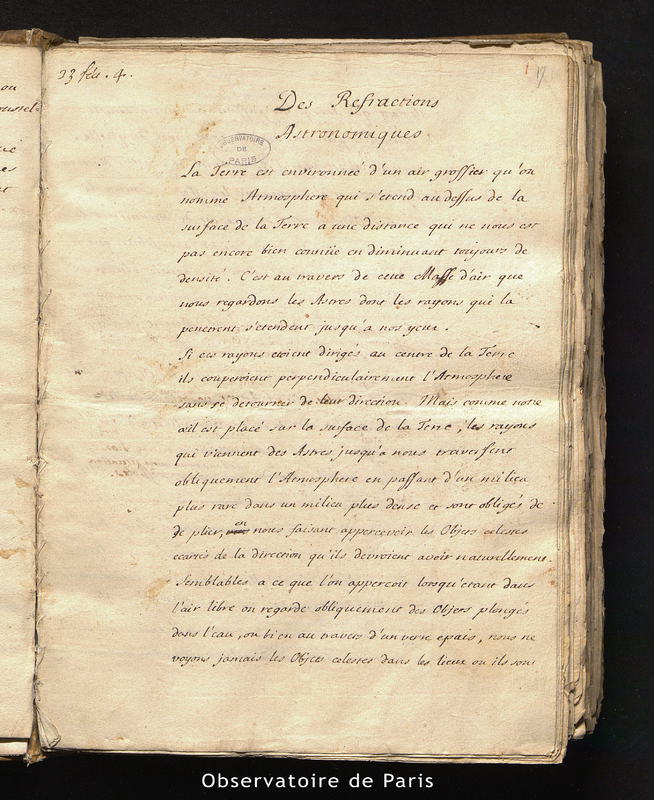 ou
ué
es
t
23 fév. 4.
17
Des Refractions
Astronomiques
OBSERVATOIRE
DE
PARIS
La Terre est environneé d'un air grossier qu'on
nomme Atmosphere qui s'etend au dessus de la
surface de la Terre a une distance qui ne nous est
pas encore bien connüe en diminuant toujours de
densité. C'est au travers de cette Masse d'air que
nous regardons les Astres dont les rayons qui la
penetrent s'etendent jusqu'a nos yeux.
Si ces rayons etoient dirigés au centre de la Terre
ils couperoient perpendiculairement l'Atmosphere
sans se detourner de leur direction. Mais comme notre
œil est placé sur la surface de la Terre, les rayons
qui viennent des Astres jusqu'a nous traversent
obliquement l'Atmosphere en passant d'un milieu
plus rare dans un milieu plus dense et sont obligés de
se plier, en nous faisant appercevoir les Objets celestes
ecartés de la direction qu'ils devroient avoir naturellement.
Semblables a ce que l'on apperçoit lorsqu'etant dans
l'air libre on regarde obliquement des Objets plongés
dans l'eau, ou bien au travers d'un verre epais, nous ne
voyons jamais les Objets celestes dans les lieux ou ils sont
Observatoire de Paris